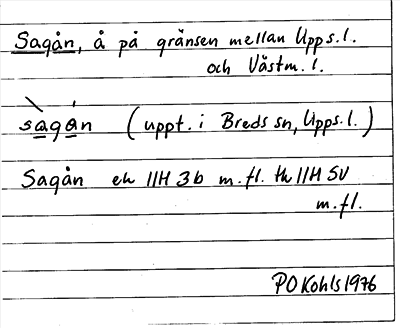 Sagån, å på gränsen mellan Upps.l.
och Västm.l.
sagån (uppt. i Breds sn, Upps.l.)
Sagån ek 11H 3b m.fl. tk 11H SV
m.fl.
PO Kohls 1976